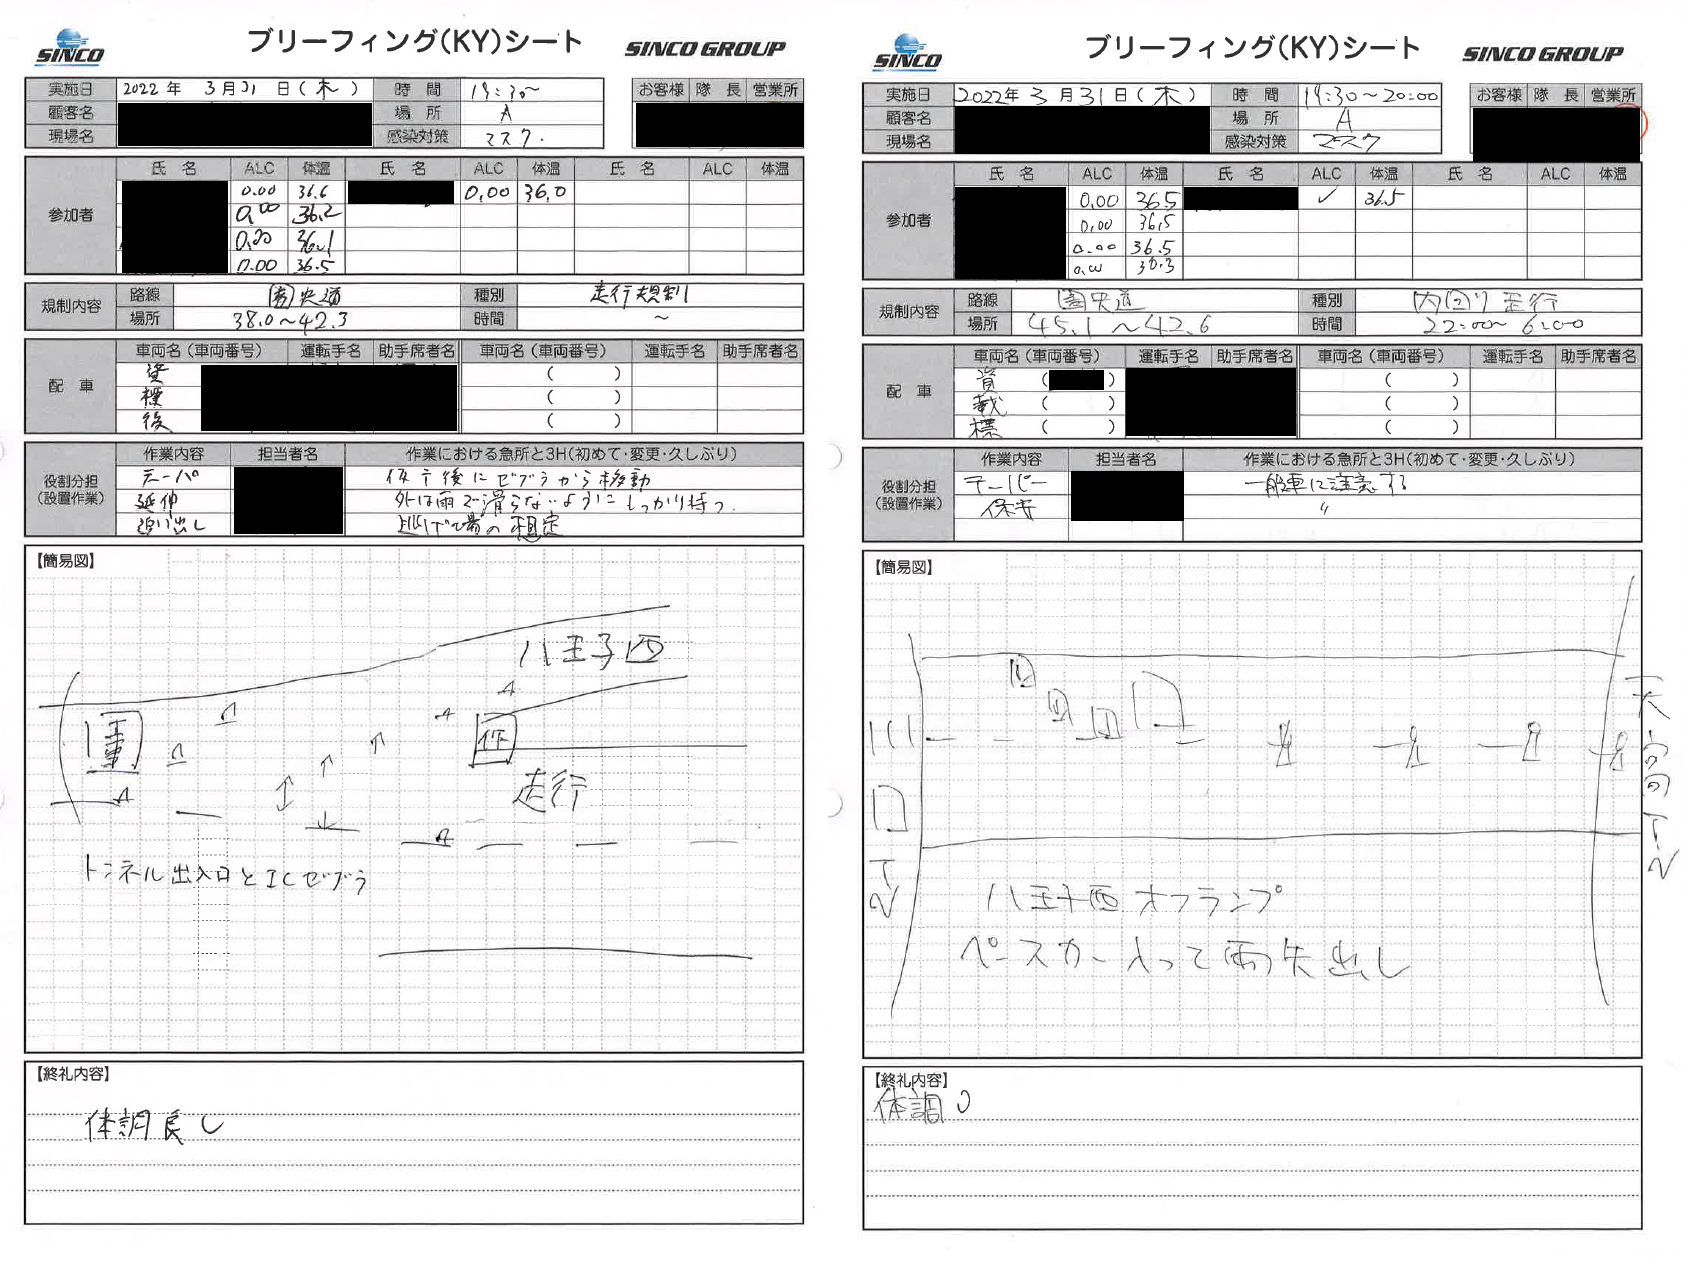 SINCO
ブリーフィング(KY)シート
SINCO GROUP
実施日 2022年 3月31日(木) 時間 19:30〜
お客様 隊長 営業所
顧客名 場所 A
現場名 感染対策 マスク.
参加者
氏名 ALC 体温 氏名 ALC 体温 氏名 ALC 体温
0.00 36.6 0.00 36.0
0.00 36.2
0.00 36.1
0.00 36.5
規制内容
路線 圏央道 種別 走行規制
場所 38.0〜42.3 時間 〜
配車
車両名(車両番号) 運転手名 助手席者名 車両名(車両番号) 運転手名 助手席者名
資 ( )
標 ( )
後 ( )
役割分担(設置作業)
作業内容 担当者名 作業における急所と3H(初めて・変更・久しぶり)
テーパ 後にゼブラから移動
延伸 外は雨で滑らないようにしっかり持つ.
追い出し 逃げ場の想定
【簡易図】
八王子西
作
走行
トンネル出入口とICゼブラ
【終礼内容】
体調良し
SINCO
ブリーフィング(KY)シート
SINCO GROUP
実施日 2022年3月31日(木) 時間 19:30〜20:00
お客様 隊長 営業所
顧客名 場所 A
現場名 感染対策 マスク
参加者
氏名 ALC 体温 氏名 ALC 体温 氏名 ALC 体温
0.00 36.5 ✓ 36.5
0.00 36.5
0.00 36.5
0.00 36.3
規制内容
路線 圏央道 種別 内回り走行
場所 45.1〜42.6 時間 22:00〜6:00
配車
車両名(車両番号) 運転手名 助手席者名 車両名(車両番号) 運転手名 助手席者名
資 ( ) ( )
載 ( ) ( )
標 ( ) ( )
役割分担(設置作業)
作業内容 担当者名 作業における急所と3H(初めて・変更・久しぶり)
テーパー 一般車に注意する
保安 〃
【簡易図】
川口TN
天合TN
八王子西オフランプ
ペースカー入って両矢出し
【終礼内容】
体調